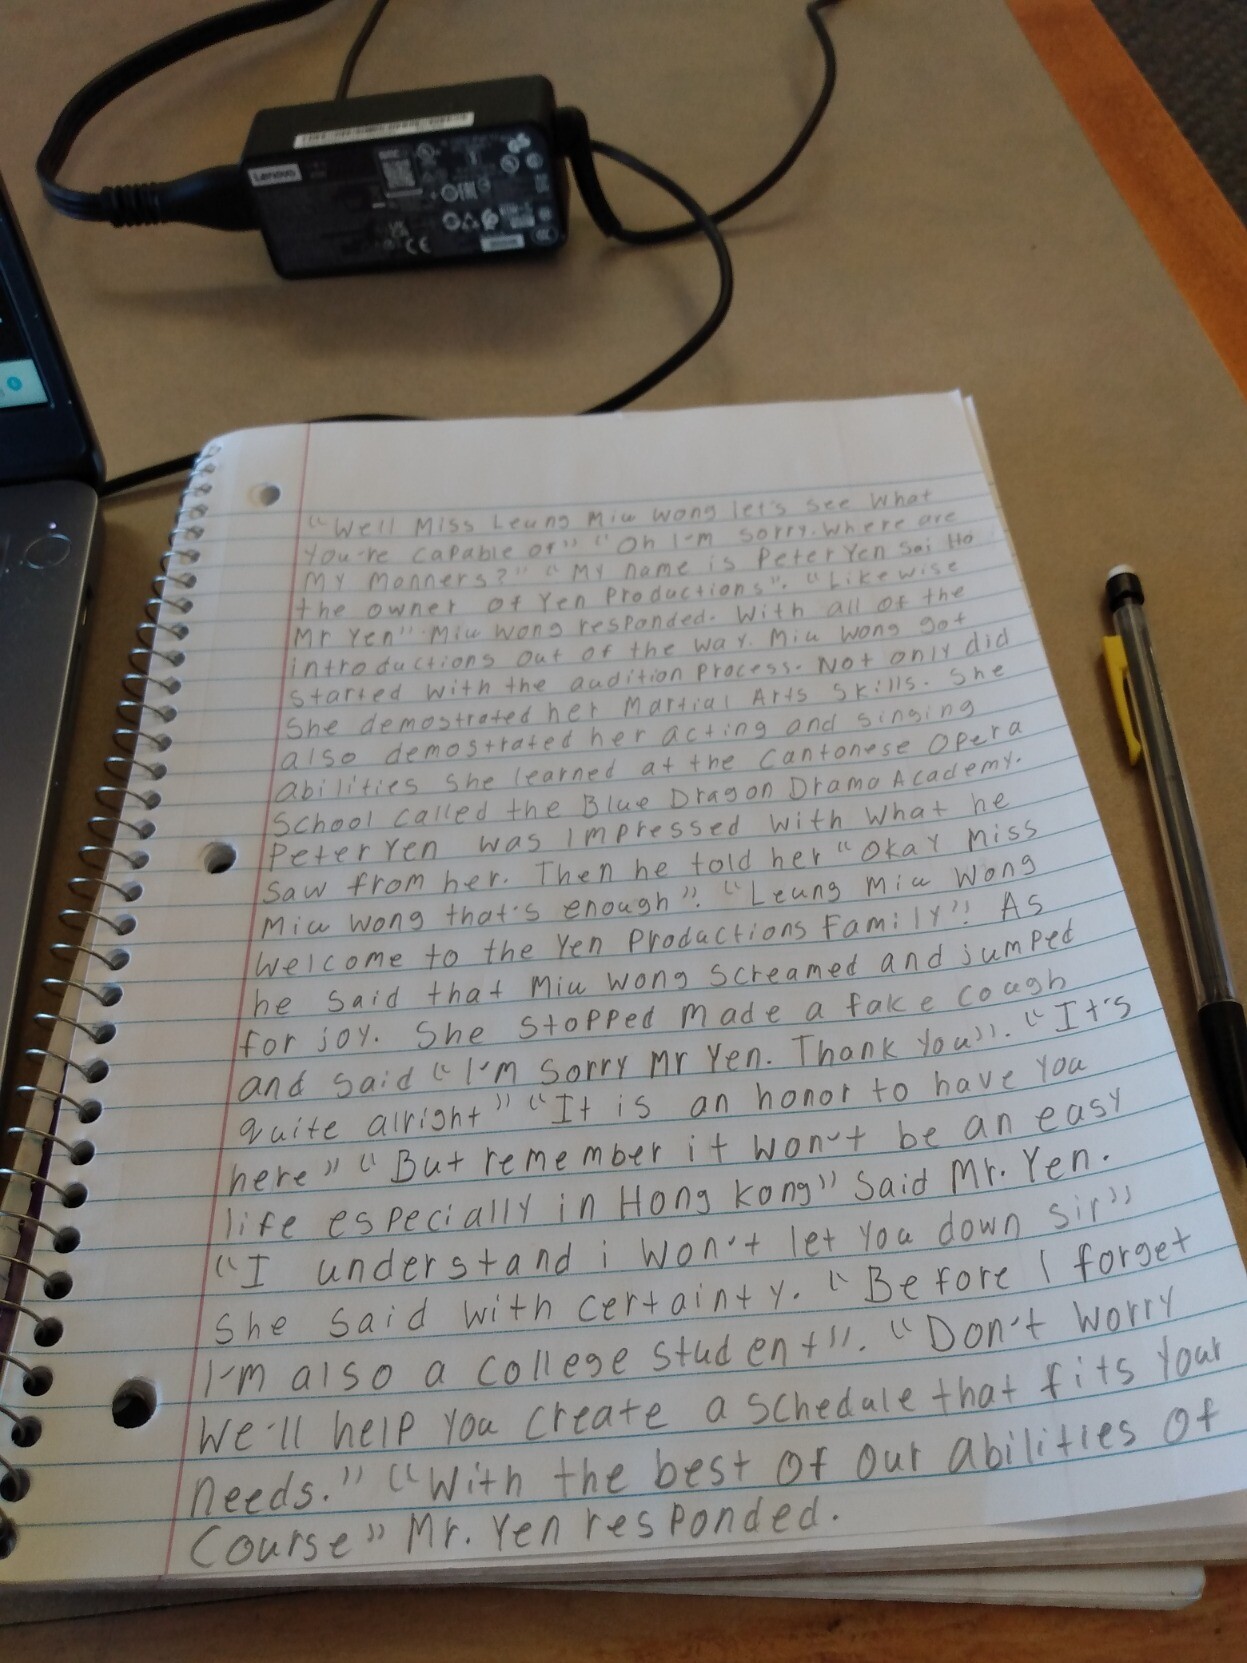 Lenovo
"Well Miss Leung Miu Wong let's see What
you're capable of" "Oh I'm sorry. Where are
My Manners?" "My name is Peter Yen Sai Ho
the owner of Yen Productions". "Likewise
Mr Yen" Miu Wong responded. With all of the
introductions out of the way. Miu Wong got
started with the audition process. Not only did
She demostrated her Martial Arts Skills. She
also demostrated her acting and singing
abilities She learned at the Cantonese Opera
School called the Blue Dragon Drama Academy.
Peter Yen was impressed with what he
saw from her. Then he told her "Okay Miss
Miu Wong that's enough". "Leung Miu Wong
Welcome to the Yen Productions Family"! As
he said that Miu Wong screamed and jumped
for joy. She stopped made a fake cough
and said "I'm sorry Mr Yen. Thank you". "It's
quite alright" "It is an honor to have you
here" "But remember it won't be an easy
life especially in Hong Kong" Said Mr. Yen.
"I understand i won't let you down sir"
She said with certainty. "Before I forget
I'm also a college student". "Don't worry
We'll help you create a schedule that fits your
needs." "With the best of our abilities of
Course" Mr. Yen responded.